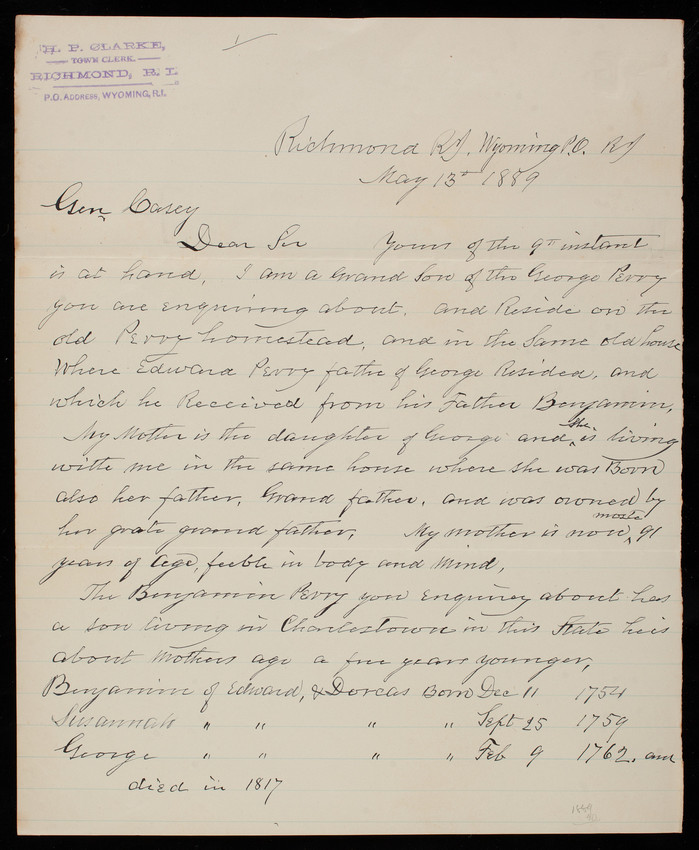 H. P. CLARKE,
TOWN CLERK.
RICHMOND, R. I.
P.O. ADDRESS, WYOMING, R.I.
1
Richmond RI. Wyoming P.O. RI
May 13th 1889
Gen Casey
Dear Sir Yours of the 9th instant
is at hand, I am a Grand Son of the George Perry
you are enquiring about. and Reside on the
old Perry homestead, and in the Same old house
Where Edward Perry fathe of George Resided, and
which he Received from his Father Benjamin,
My Mother is the daughter of George and she is living
withe me in the same house where she was Born
also her father, Grand father, and was owned by
her grate grand father, My mother is now moste 91
years of age, feeble in body and mind,
The Benjamin Perry you enquirey about has
a son living in Charlestown in this State he is
about Mothers age a few years younger,
Benjamin of Edward, & Dorcas Born Dec 11 1754
Susannah " " " " Sept 25 1759
George " " " " Feb 9 1762. and
died in 1817
1889